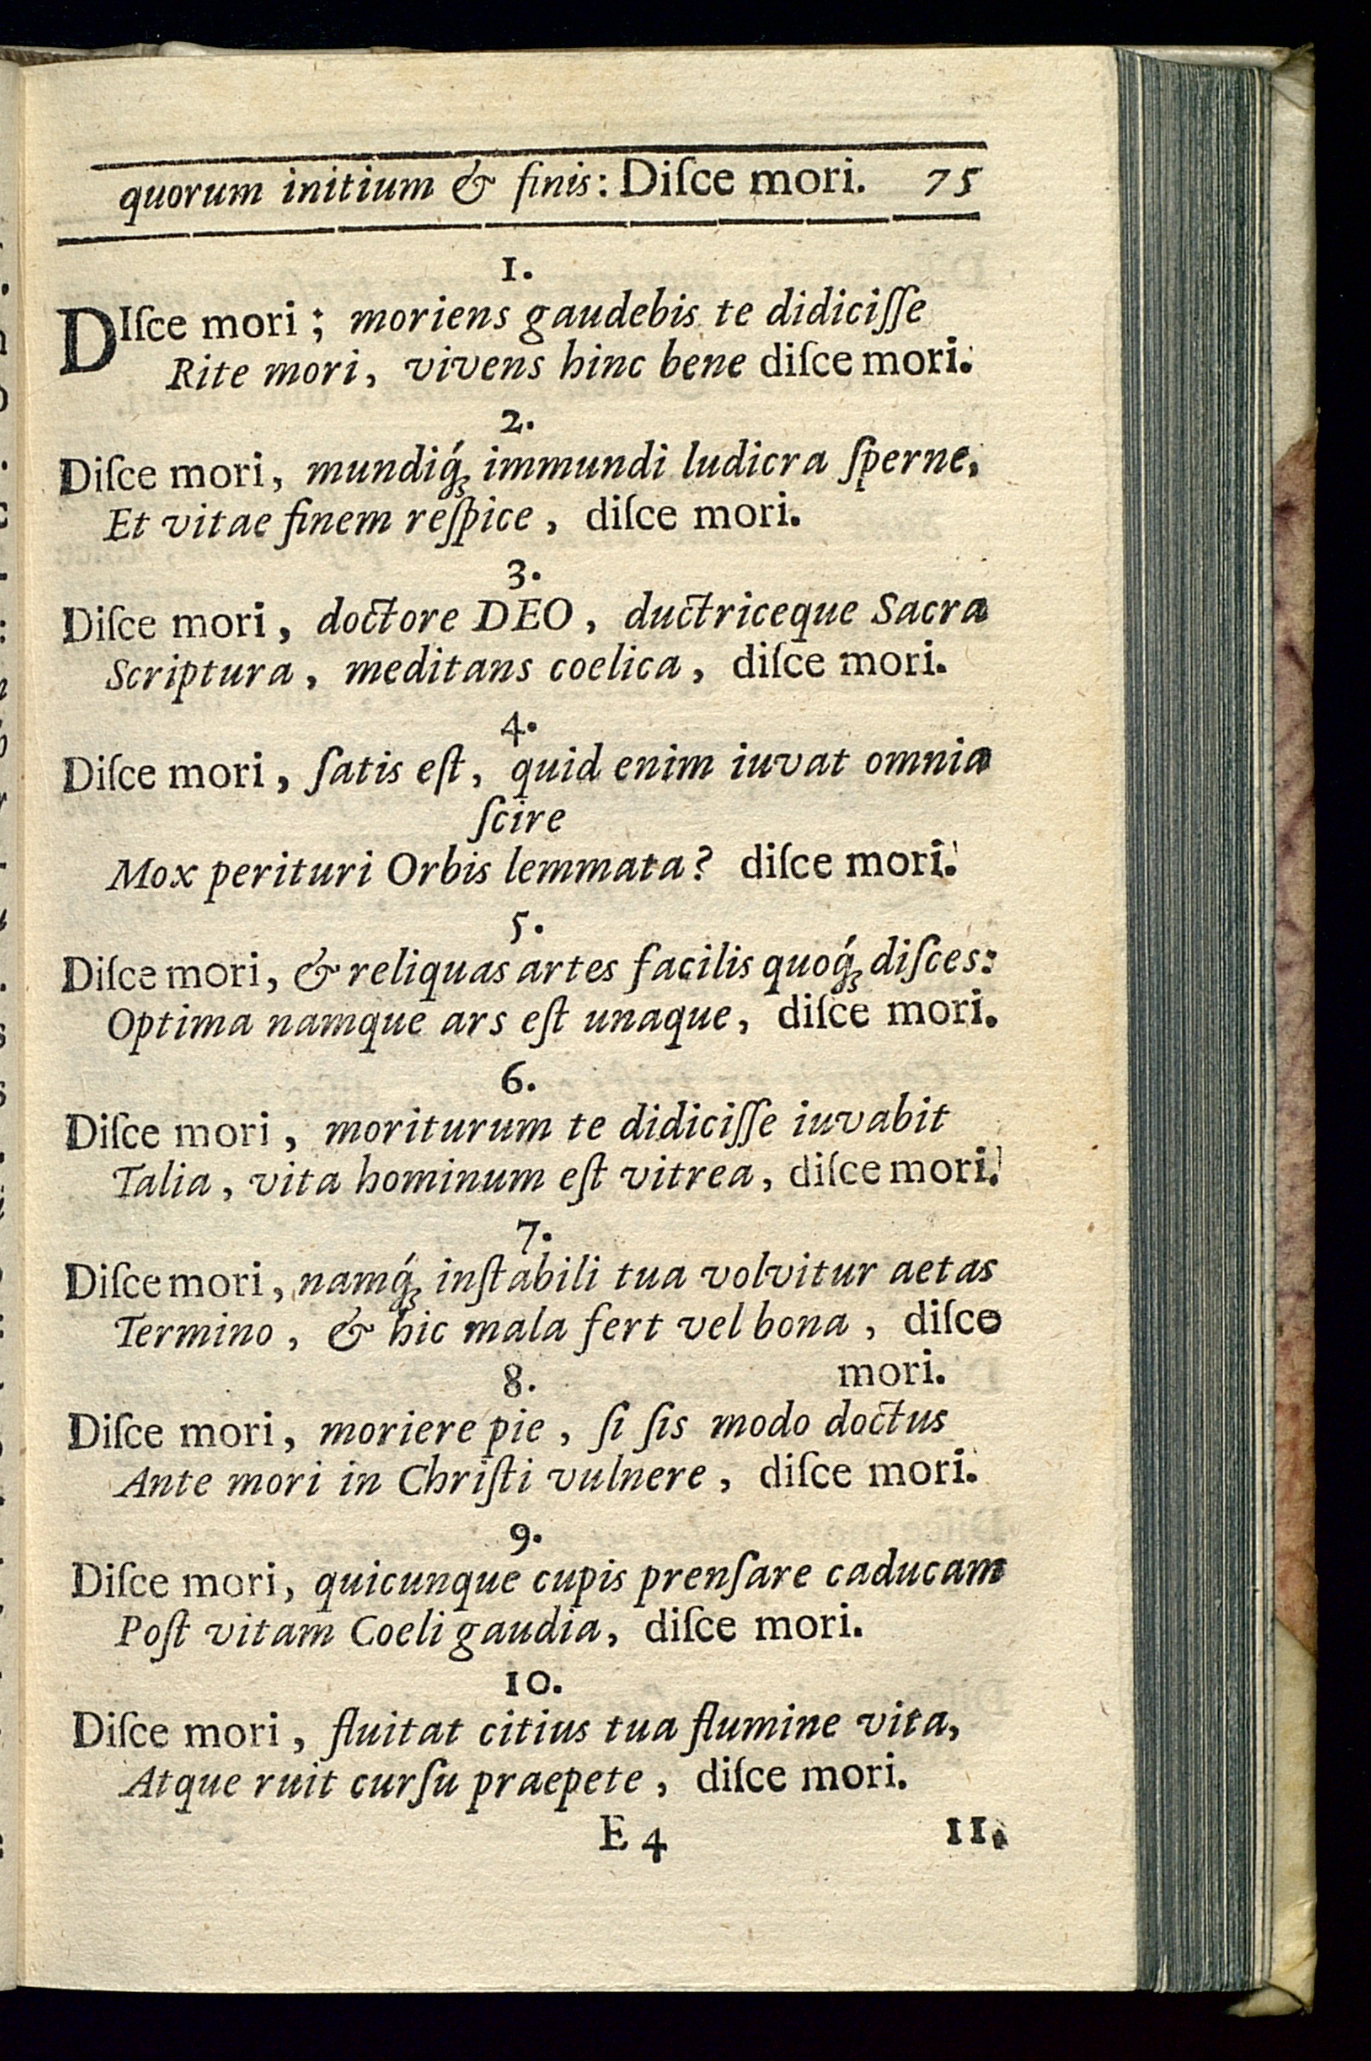 quorum initium & finis: Diſce mori. 75
1.
DIſce mori; moriens gaudebis te didiciſſe
Rite mori, vivens hinc bene diſce mori.
2.
Diſce mori, mundiq́ꝫ immundi ludicra ſperne,
Et vitae finem reſpice, diſce mori.
3.
Diſce mori, doctore DEO, ductriceque Sacra
Scriptura, meditans coelica, diſce mori.
4.
Diſce mori, ſatis eſt, quid enim iuvat omnia
ſcire
Mox perituri Orbis lemmata? diſce mori.
5.
Diſce mori, & reliquas artes facilis quoq́ꝫ diſces:
Optima namque ars eſt unaque, diſce mori.
6.
Diſce mori, moriturum te didiciſſe iuvabit
Talia, vita hominum eſt vitrea, diſce mori.
7.
Diſce mori, namq́ꝫ inſtabili tua volvitur aetas
Termino, & hic mala fert vel bona, diſce
mori.
8.
Diſce mori, moriere pie, ſi ſis modo doctus
Ante mori in Chriſti vulnere, diſce mori.
9.
Diſce mori, quicunque cupis prenſare caducam
Poſt vitam Coeli gaudia, diſce mori.
10.
Diſce mori, fluitat citius tua flumine vita,
Atque ruit curſu praepete, diſce mori.
E 4 11.